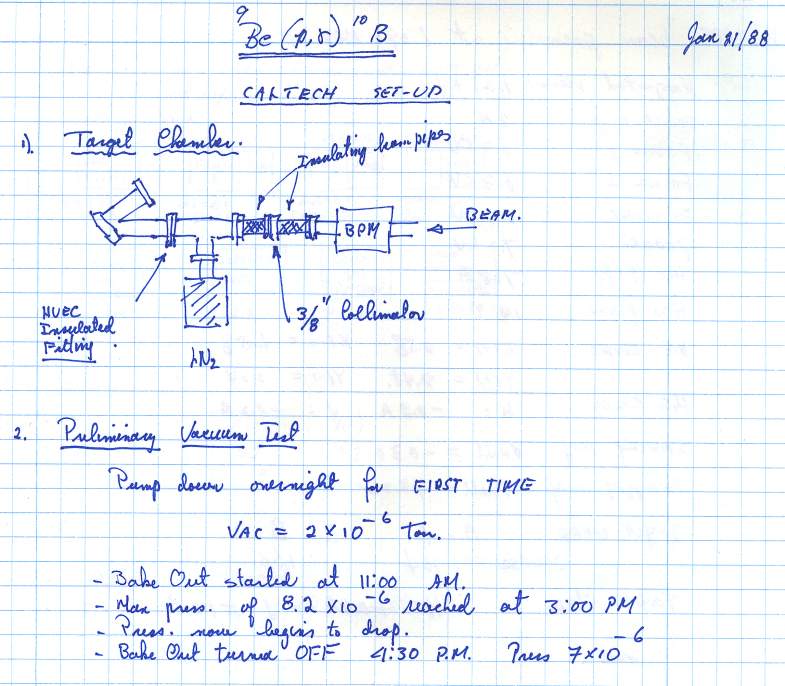 ⁹Be (p,γ) ¹⁰B
Jan 21/88
CALTECH SET-UP
1). Target Chamber.
Insulating beam pipes
BPM
BEAM.
3/8" Collimator
NUEC
Insulated
Fitting.
LN₂
2. Preliminary Vacuum Test
Pump down overnight for FIRST TIME
VAC = 2 × 10⁻⁶ Torr.
- Bake Out started at 11:00 AM.
- Max press. of 8.2 × 10⁻⁶ reached at 3:00 PM
- Press. now begins to drop.
- Bake Out turned OFF 4:30 P.M. Press 7×10⁻⁶